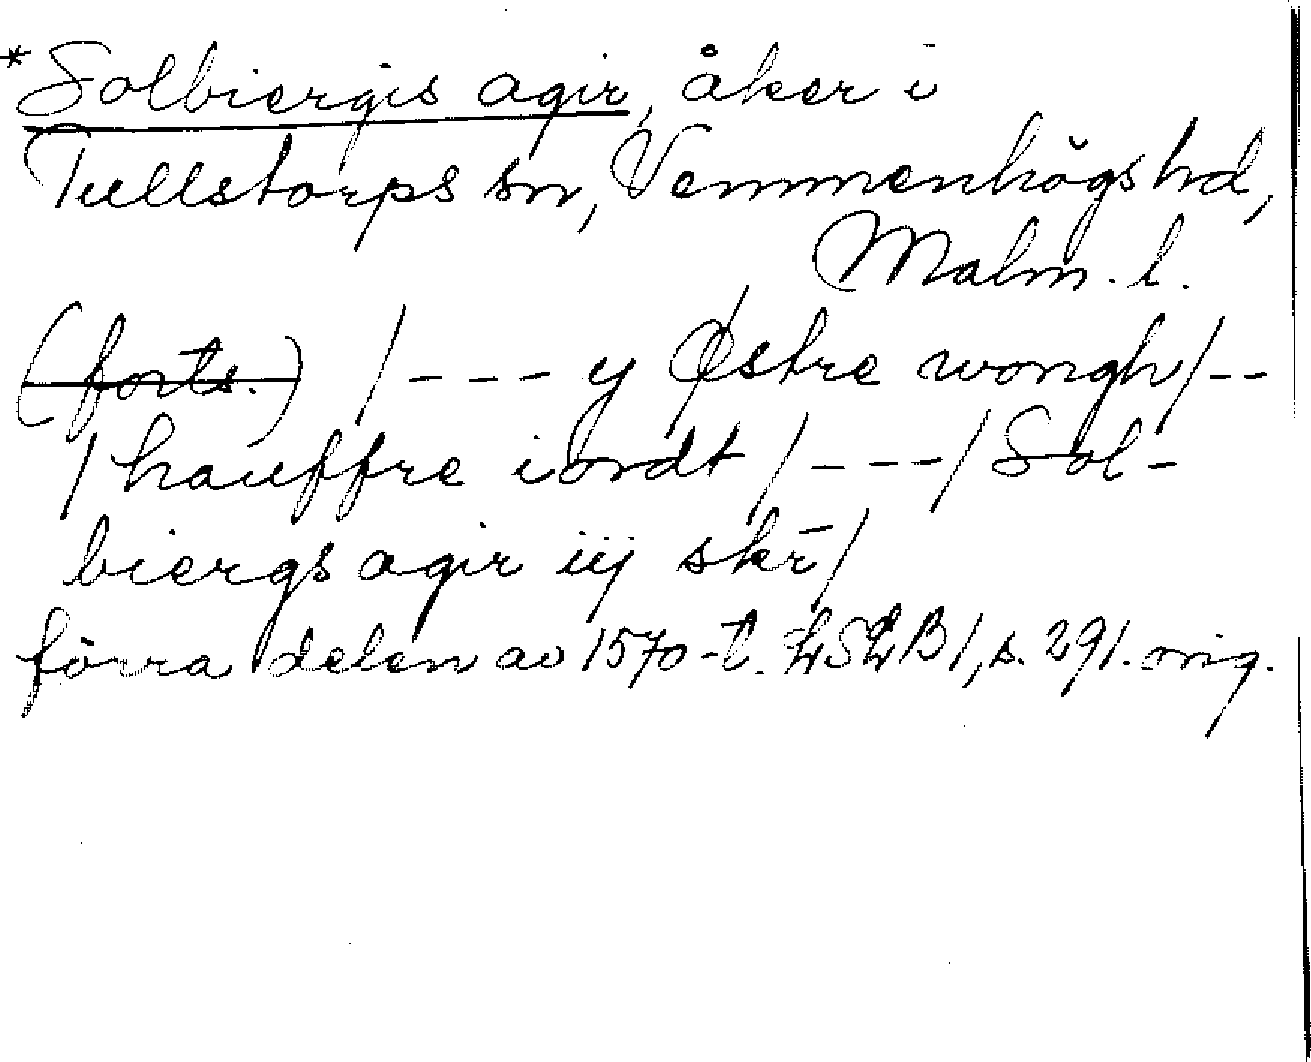 *Solbiergis agir, åker i
Tullstorps sn, Vemmenhögs hd,
Malm. l.
(forts.) /---- y Østre wongh/--
/hauffre iordt/----/Sol-
biergs agir iij skr̄/
förra delen av 1570-t. LSLB1, s. 291. orig.